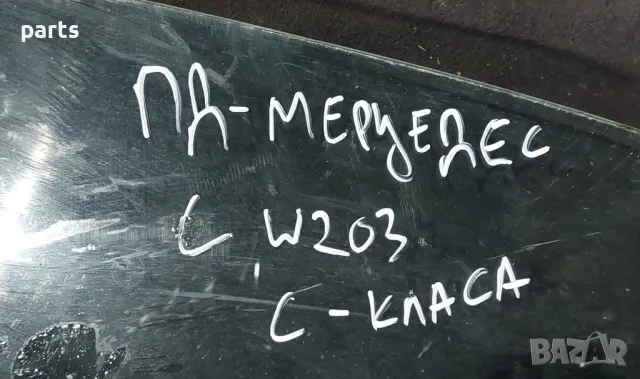 parts
ПД-МЕРЦЕДЕС
C W203
С-КЛАСА
BAZAR